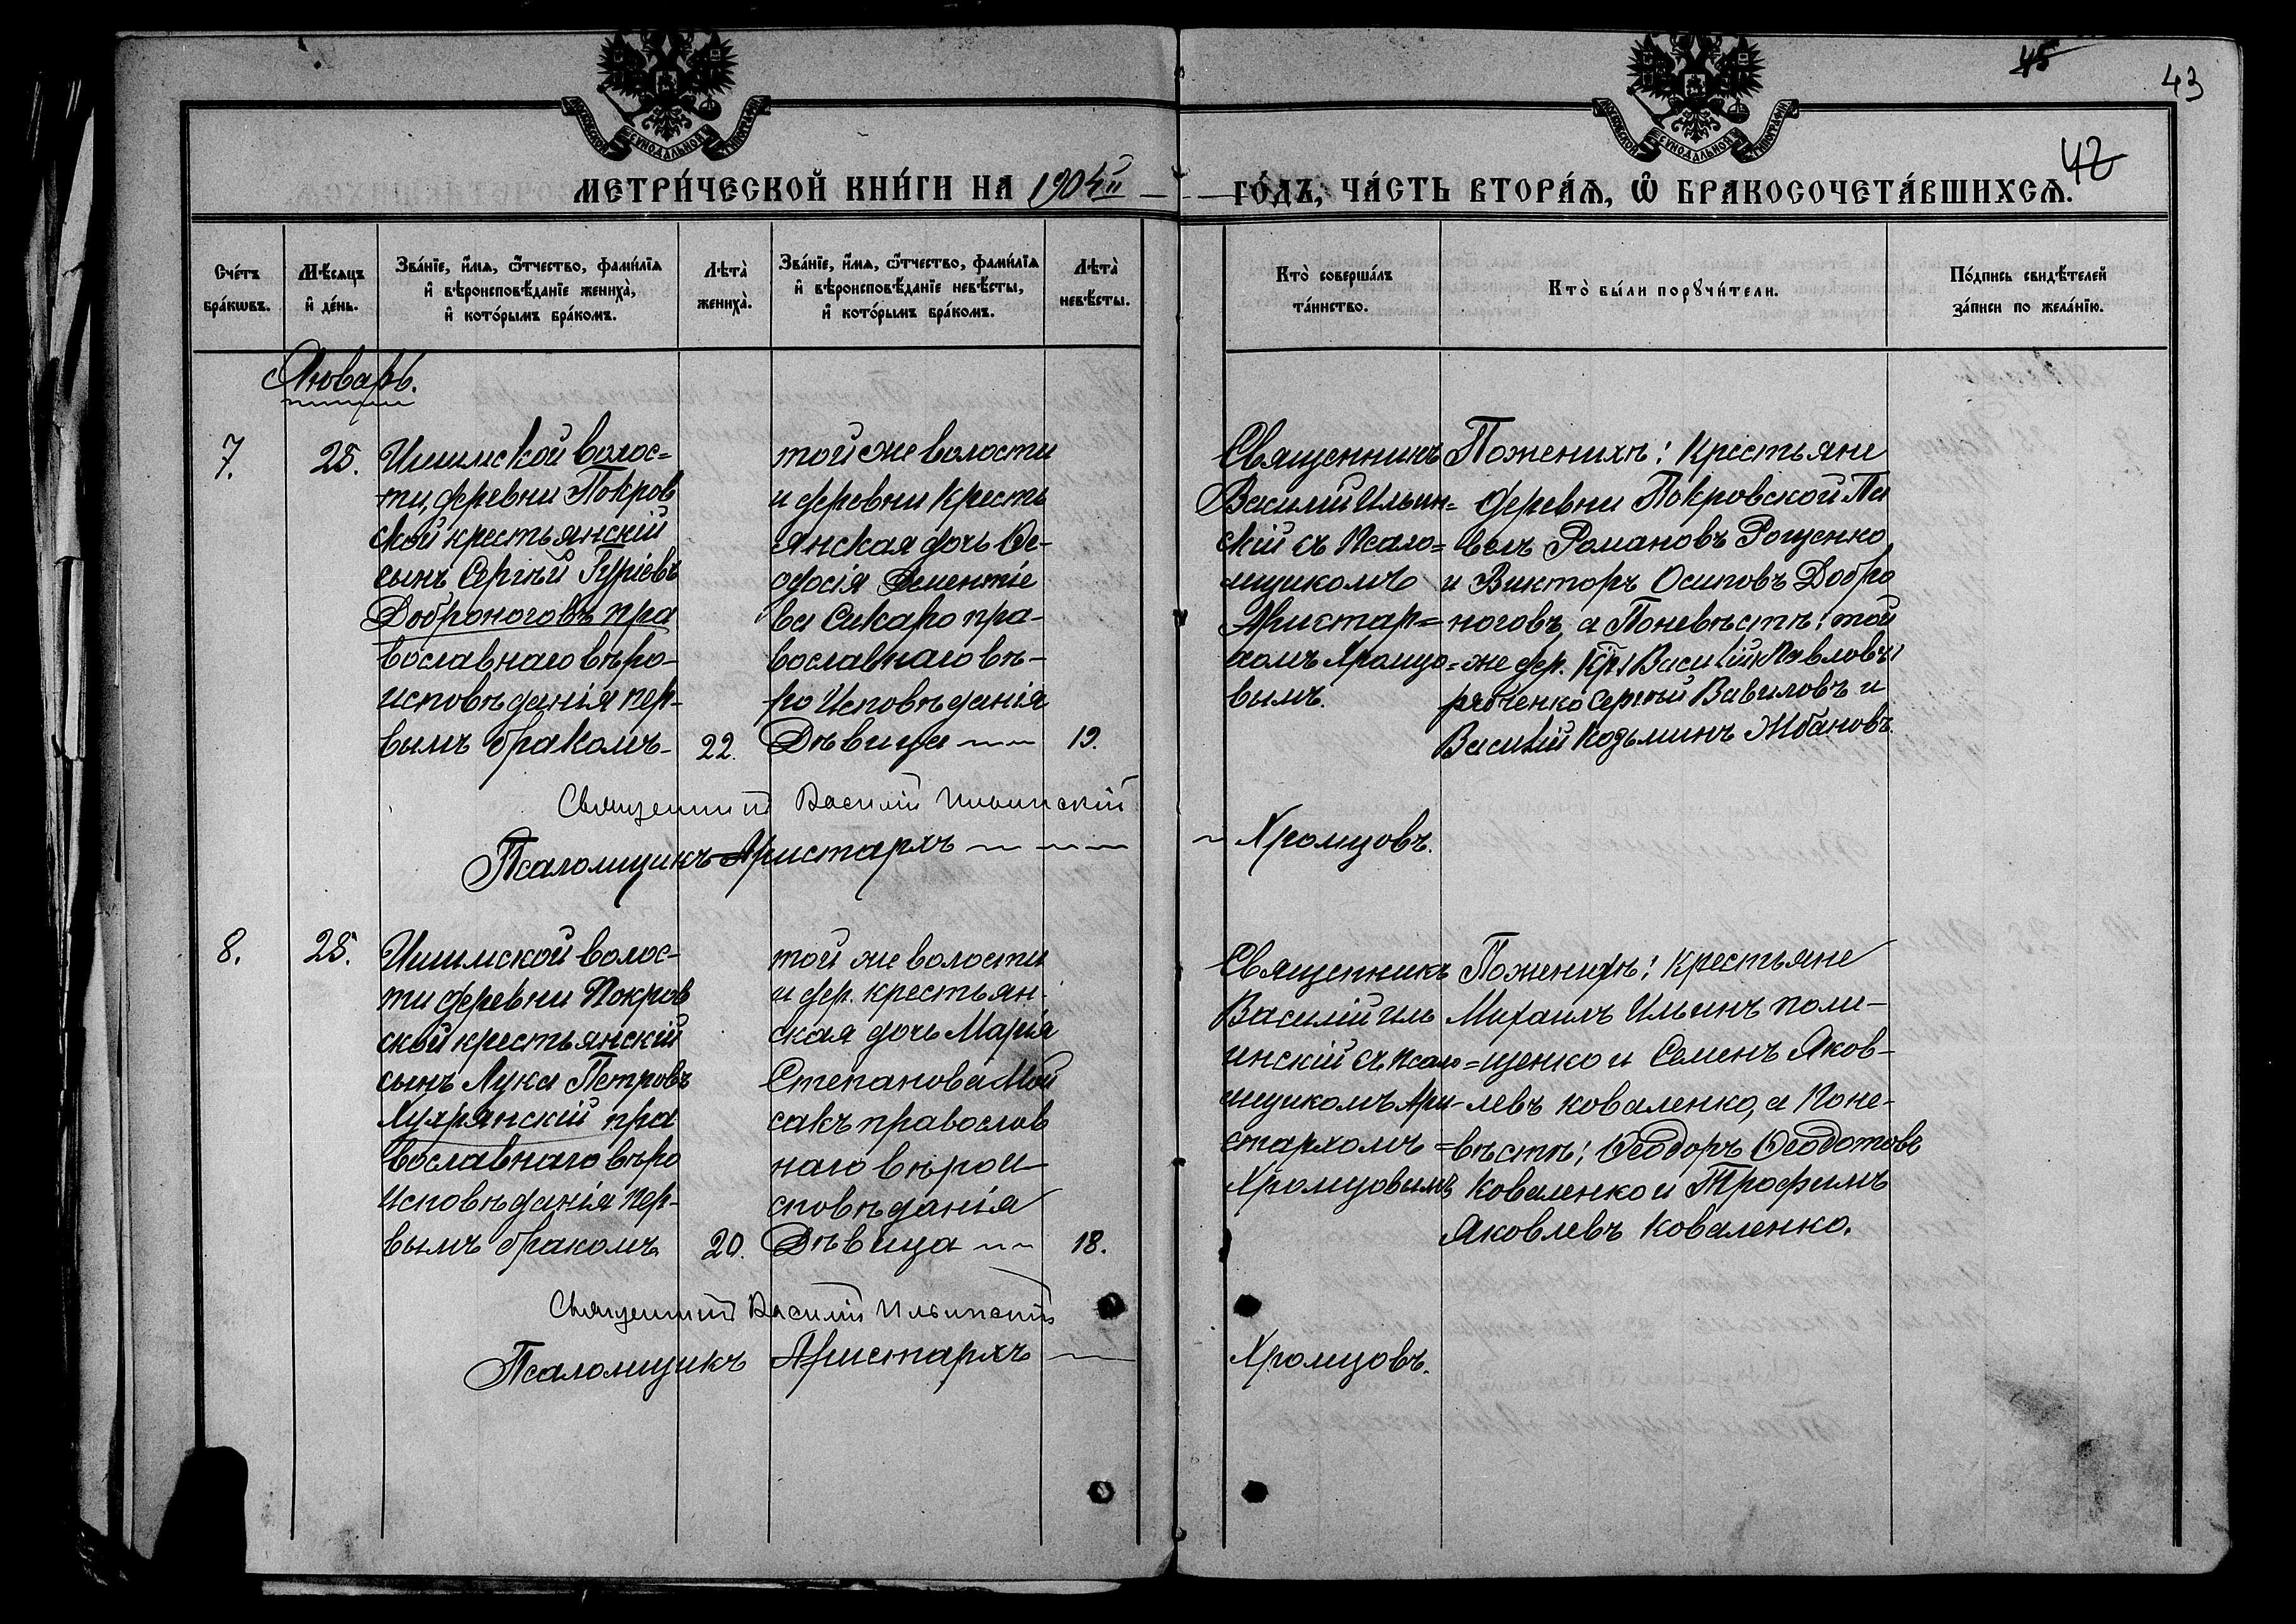 45
43
42
МОСКОВСКОЙ СУНОДАЛЬНОЙ ТИПОГРАФІИ
МОСКОВСКОЙ СУНОДАЛЬНОЙ ТИПОГРАФІИ
МЕТРИ́ЧЕСКОЙ КНИ́ГИ НА 1904й ГО́ДЪ, ЧА́СТЬ ВТОРА́Ѧ, Ѡ҆ БРАКОСОЧЕТА́ВШИХСѦ.
Сче́тъ
бра́кѡвъ.
Мѣ́сяцъ
и҆ де́нь.
Зва́нїе, и҆́мѧ, ѻ҆́тчество, фами́лїѧ
и҆ вѣроисповѣ́данїе жениха̀,
и҆ кото́рымъ бра́комъ.
Лѣта̀
жениха̀.
Зва́нїе, и҆́мѧ, ѻ҆́тчество, фами́лїѧ
и҆ вѣроисповѣ́данїе невѣ́сты,
и҆ кото́рымъ бра́комъ.
Лѣта̀
невѣ́сты.
Кто̀ соверша́лъ
та́инство.
Кто̀ бы́ли порꙋчи́тели.
По́дпись свидѣ́телей
за́писи по жела́нїю.
Январь.
7.
25.
Ишимской волос=
ти, деревни Покров
ской крестьянскій
сынъ Сергѣй Гуріевъ
Доброноговъ пра
вославнаго вѣро-
исповѣданія пер-
вымъ бракомъ-
22.
той же волости
и деревни кресть
янская дочь Ѳе-
одосія Дементіе
ва Сикаро пра-
вославнаго вѣ-
ро исповѣданія
Дѣвица
19.
Священникъ
Василій Ильин=
скій съ псало=
мщикомъ
Аристар=
хомъ Хромцо=
вымъ.
По женихѣ: крестьяне
деревни Покровской Па
велъ Романовъ Рощенко
и Викторъ Осиповъ Добро
ноговъ, а по невѣстѣ: той
же дер. кр. Василій Павловъ
рябченко Сергѣй Вавиловъ и
Василій Козьминъ Жбановъ.
Священникъ Василій Ильинскій
Псаломщикъ Аристархъ Хромцовъ.
8.
25.
Ишимской волос-
ти деревни Покров
ской крестьянскій
сынъ Лука Петровъ
Хухрянскій пра
вославнаго вѣро
исповѣданія пер-
вымъ бракомъ
20.
той же волости
и дер. крестьян-
ская дочь Марія
Степанова Мой
сакъ православ
наго вѣрои-
сповѣданія
Дѣвица
18.
Священникъ
Василій Иль
инскій съ псало=
мщикомъ Ари-
стархомъ
Хромцовымъ
По женихѣ: крестьяне
Михаилъ Ильинъ поли-
щенко и Семенъ Яков-
левъ коваленко, а по не-
вѣстѣ: Ѳеодоръ Ѳеодотовъ
Коваленко и Трофимъ
Яковлевъ Коваленко.
Священникъ Василій Ильинскій
Псаломщикъ Аристархъ Хромцовъ.